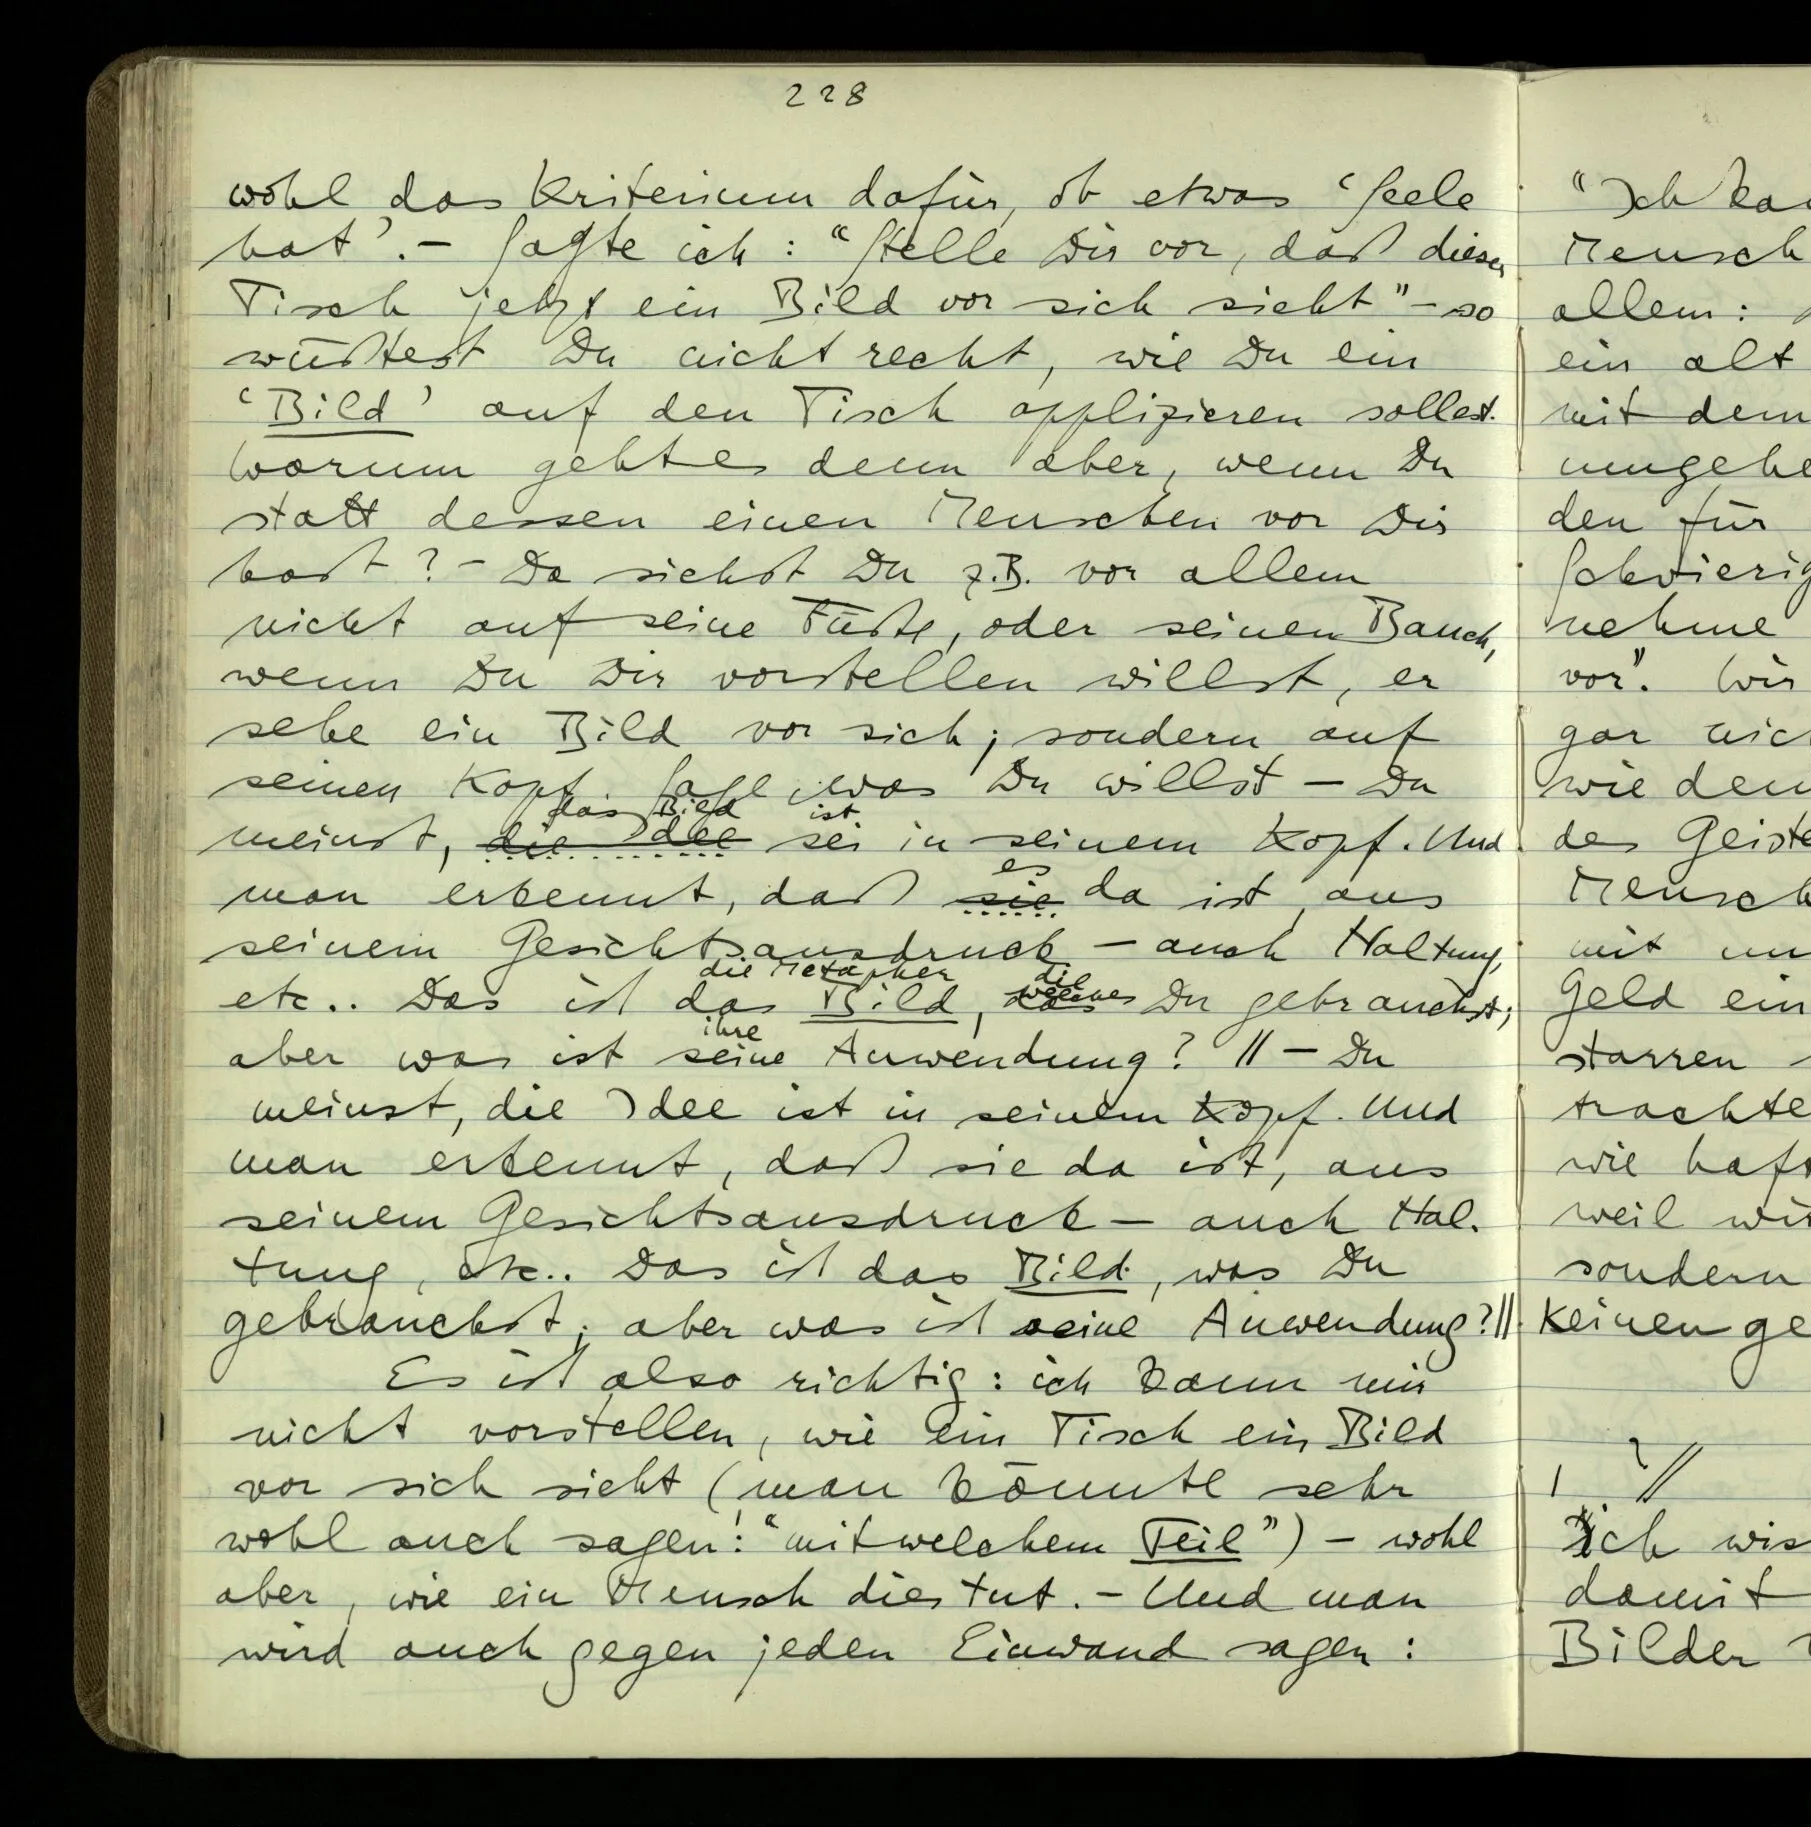 228
wohl das Kriterium dafür, ob etwas ‘Seele
hat’. – Sagte ich: “Stelle Dir vor, daß dieser
Tisch jetzt ein Bild vor sich sieht” – so
wüßtest Du nicht recht, wie Du ein
‘Bild’ auf den Tisch applizieren sollest.
Warum geht es denn aber, wenn Du
statt dessen einen Menschen vor Dir
hast? – Da siehst Du z.B. vor allem
nicht auf seine Füße, oder seinen Bauch,
wenn Du Dir vorstellen willst, er
sehe ein Bild vor sich; sondern auf
seinen Kopf. Sage was Du willst – Du
das Bild ist
meinst, die Idee sei in seinem Kopf. Und
es
man erkennt, daß sie da ist, aus
seinem Gesichtsausdruck – auch Haltung,
die Metapher die
welches
etc.. Das ist das Bild, das Du gebrauchst;
ihre
aber was ist seine Anwendung? // – Du
meinst, die Idee ist in seinem Kopf. Und
man erkennt, daß sie da ist, aus
seinem Gesichtsausdruck – auch Hal-
tung, etc.. Das ist das Bild, was Du
gebrauchst; aber was ist seine Anwendung? //
Es ist also richtig: ich kann mir
nicht vorstellen, wie ein Tisch ein Bild
vor sich sieht (man könnte sehr
wohl auch sagen: “mit welchem Teil”) – wohl
aber, wie ein Mensch dies tut. – Und man
wird auch gegen jeden Einwand sagen:
“Ich
Mensch
allem:
ein alt
mit dem
umgehe
den für
Schwierig
nehme
vor”. Wir
gar nich
wie den
des Geiste
Mensch
mit un
Geld ein
starren
trachte
wie haft
weil wir
sondern
keinen ge
ı ? //
ich wis
damit
Bilder